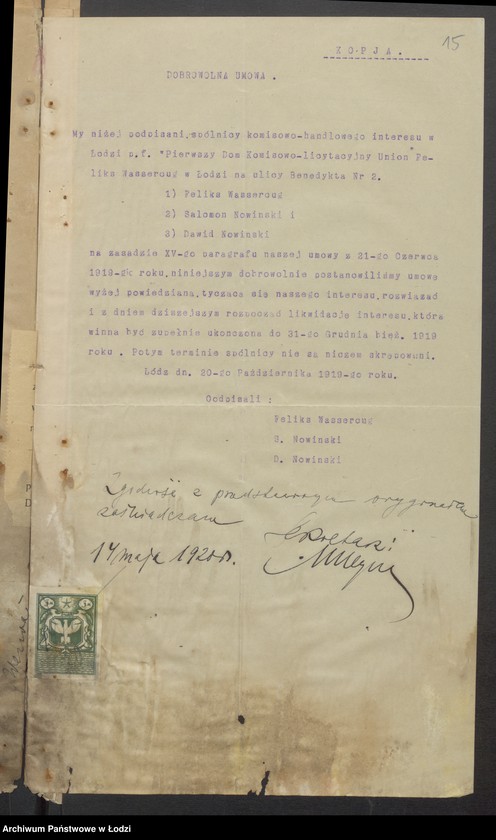 15
K O P J A .
DOBROWOLNA UMOWA .
My niżej podpisani, spólnicy komisowo-handlowego interesu w
Łodzi p.f. "Pierwszy Dom Komisowo-licytacyjny Union" Fe-
liks Wassercug w Łodzi na ulicy Benedykta Nr 2.
1) Feliks Wassercug
2) Salomon Nowinski i
3) Dawid Nowinski
na zasadzie XV-go paragrafu naszej umowy z 21-go Czerwca
1919-go roku, niniejszym dobrowolnie postanowiliśmy umowę
wyżej powiedzianą, tyczącą się naszego interesu, rozwiązać
i z dniem dzisiejszym rozpocząć likwidację interesu, która
winna być zupełnie ukończona do 31-go Grudnia bież. 1919
roku . Potym terminie spólnicy nie są niczem skrępowani.
Łódź dn. 20-go Października 1919-go roku.
Podpisali :
Feliks Wassercug
S. Nowinski
D. Nowinski
Zgodność z przedstawionym oryginałem
zaświadczam
Sekretarz:
14 maja 1920 r.
Archiwum Państwowe w Łodzi